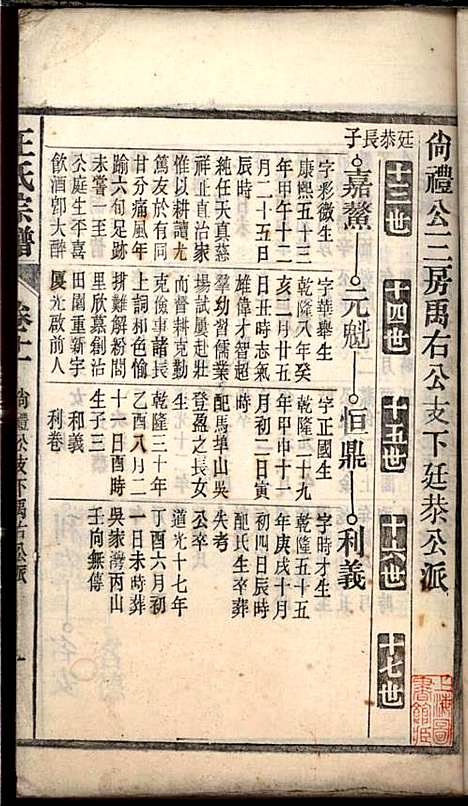 尙禮公三房禹右公支下廷恭公派
十三世
十四世
十五世
十六世
十七世
廷恭長子
嘉鰲
元魁
恒鼎
利義
字彩微生
康熙五十三
年甲午十二
月二十五日
辰時
純任天真慕
祥止直治家
惟以耕讀尤
篤友於有同
甘分痛風年
踰六旬足跡
未嘗一至
公庭生平喜
飲酒卽大醉
字華舉生
乾隆八年癸
亥二月廿五
日丑時志氣
雄偉才智超
羣幼習儒業
揚試屢赴壯
而督耕克勤
克儉事諸長
上詞和色愉
排難解粉閧
里欣慕創沽
田園重新宇
厦光啟前人
字正國生
乾隆二十九
年甲申十一
月初二日寅
時
配馬埠山吳
登盈之長女
生
乾隆三十年
乙酉八月二
十六日酉時
生子三
和義
利卷
字時才生
乾隆五十五
年庚戌十月
初四日辰時
配氏生卒葬
失考
公卒
道光十七年
丁酉六月初
一日未時葬
吳家灣丙山
壬向無傳
王氏宗譜
卷十一
尙禮公支下禹右公派
一
上海圖書館藏